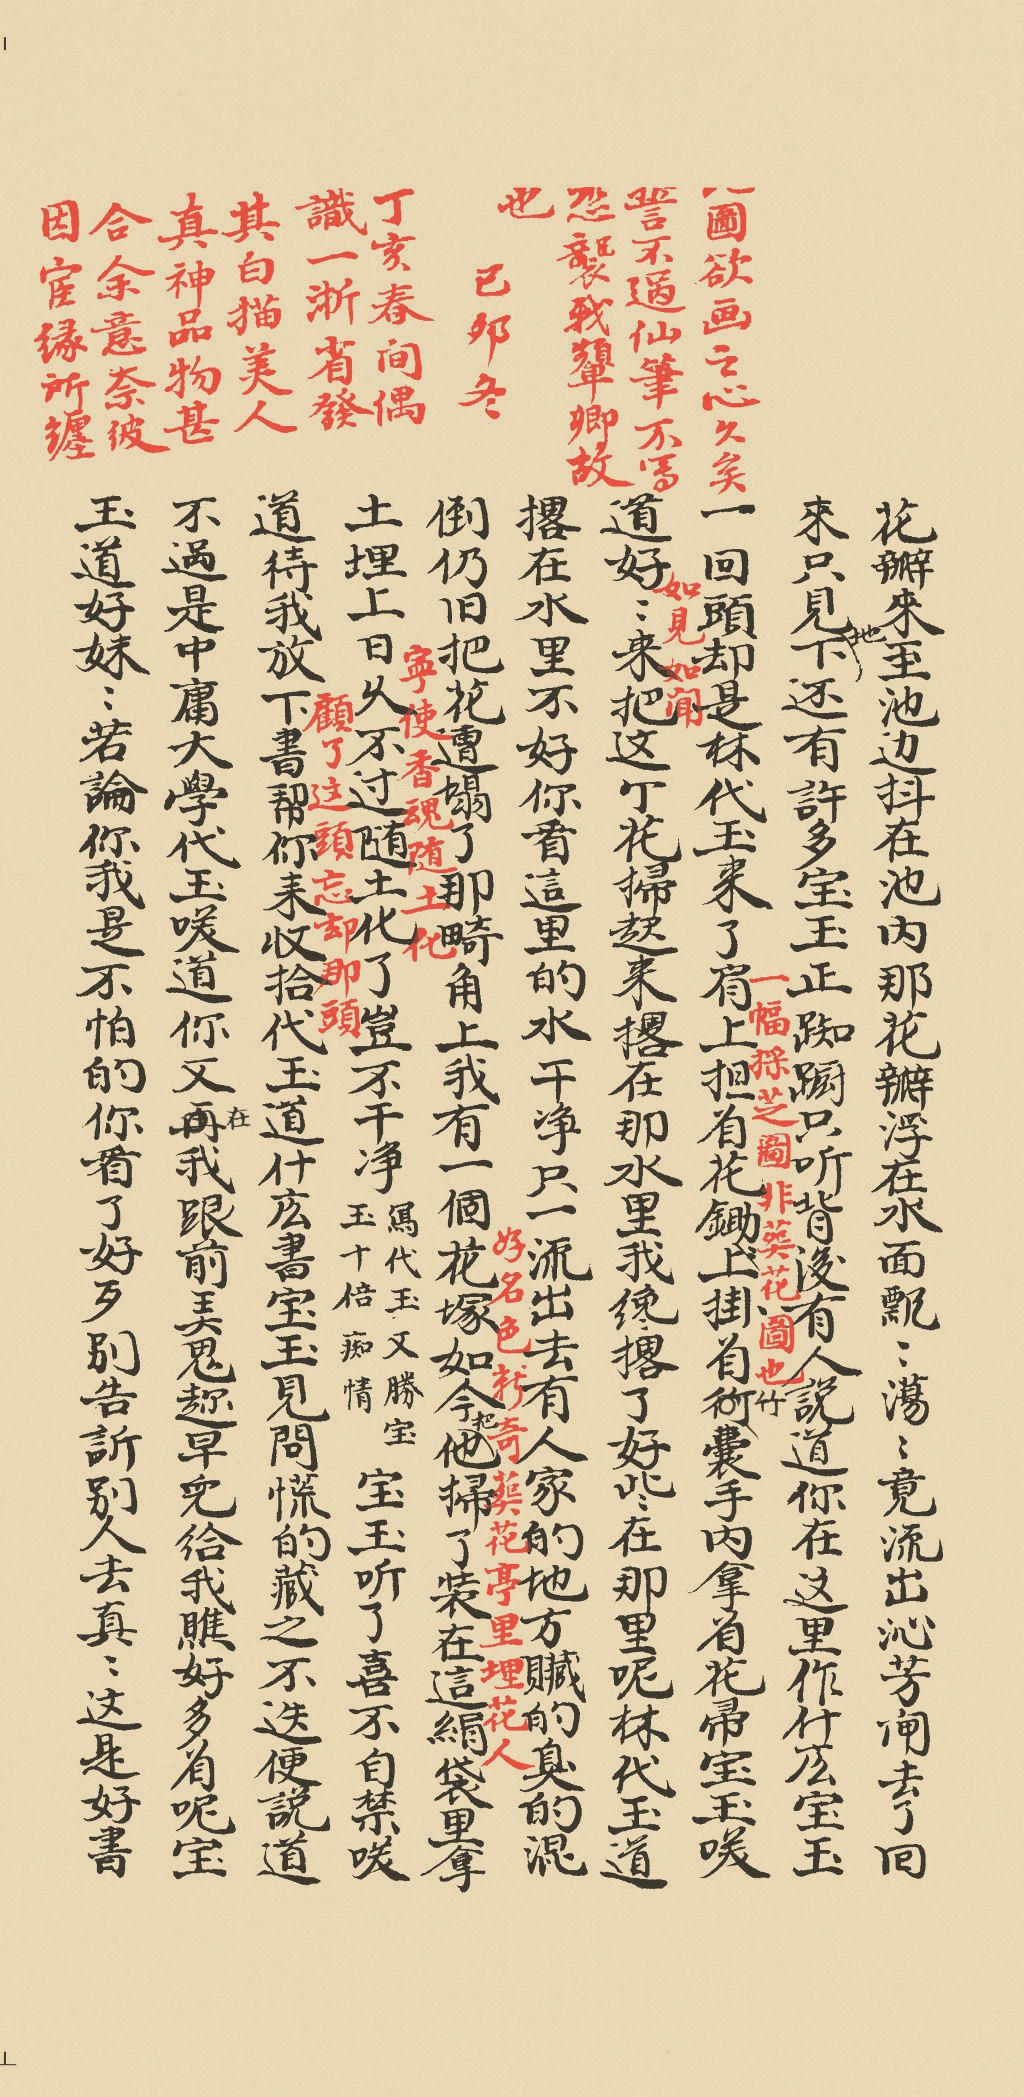 圖欲画之心久矣
誓不過仙筆不寫
恐襲我顰卿故
也
己卯冬
丁亥春间偶
識一淅省發
其白描美人
真神品物甚
合余意奈彼
因宦缘所纏
花瓣來至池边抖在池内那花瓣浮在水面飄〻蕩〻竟流出沁芳闸去了回
來只見地下还有許多宝玉正踟蹰只听背後有人説道你在这里作什庅宝玉
一幅採芝圖非葬花圖也
一回頭却是林代玉来了肩上担着花鋤上掛着行囊手内拿着花帚宝玉咲
竹
如見如聞
道好〻来把这丁花掃起来撂在那水里我纔撂了好些在那里呢林代玉道
撂在水里不好你看這里的水干净只一流出去有人家的地方臟的臭的混
好名色新奇葬花亭里埋花人
倒仍旧把花遭塌了那畸角上我有一個花塚如今把他掃了装在這絹袋里拿
寧使香魂随土化
土埋上日久不过随土化了豈不干净
寫代玉又勝宝
玉十倍痴情
宝玉听了喜不自禁咲
顧了这頭忘却那頭
道待我放下書帮你来收拾代玉道什庅書宝玉見問慌的藏之不迭便説道
不過是中庸大學代玉咲道你又在我跟前弄鬼趂早兒給我瞧好多着呢宝
玉道好妹〻若論你我是不怕的你看了好歹别告訴别人去真〻这是好書